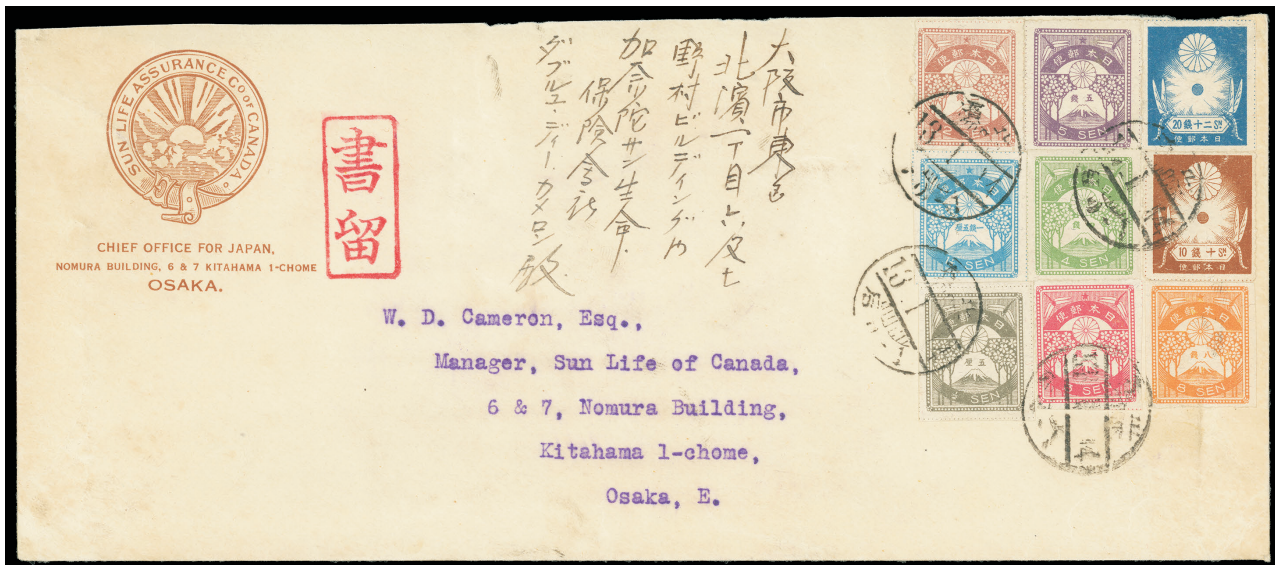 SUN LIFE ASSURANCE CO OF CANADA
CHIEF OFFICE FOR JAPAN,
NOMURA BUILDING, 6 & 7 KITAHAMA 1-CHOME
OSAKA.
書留
大阪市東区
北濱一丁目
野村ビルディング内
加奈陀サン生命
保険会社
ダブルユ・ディー・カメロン殿
W. D. Cameron, Esq.,
Manager, Sun Life of Canada,
6 & 7, Nomura Building,
Kitahama 1-chome,
Osaka, E.
日本郵便
SEN
日本郵便
五銭
5 SEN
20 銭十二 Sn
便郵本日
日本郵便
一銭五厘
SEN
日本郵便
銭
4 SEN
10 銭十 Sn
便郵本日
日本郵便
五厘
SEN
日本郵便
SEN
日本郵便
八銭
8 SEN